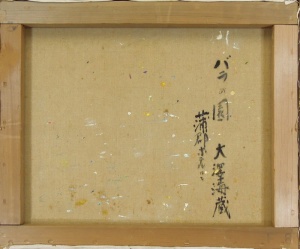 バラの園 大澤海蔵
蒲郡